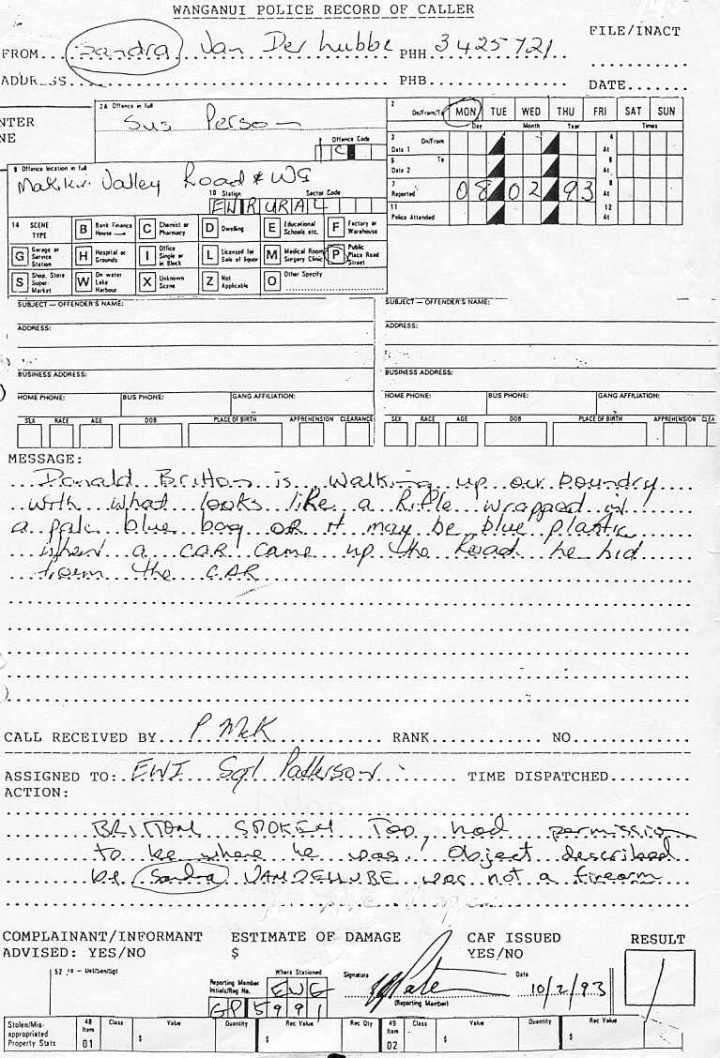 WANGANUI POLICE RECORD OF CALLER
FILE/INACT
FROM Sandra Van Der hubbe PHH 3425721
ADDR SS PHB DATE
NTER
NE
2A Offence in full
Sus Person
Offence Code
C
2 On/From/To MON TUE WED THU FRI SAT SUN
Day Month Year Times
3 On/From
Date 1 At
5 To
Date 2 At
7
Reported 08 02 93 At
11
Police Attended 12 At
9 Offence location in full
Valley Road & WG
10 Station Sector Code
RURAL
14 SCENE TYPE
B Bank Finance House
C Chemist or Pharmacy
D Dwelling
E Educational Schools etc.
F Factory or Warehouse
G Garage or Service Station
H Hospital or Grounds
I Office Single or in Block
L Licensed for Sale of liquor
M Medical Room Surgery Clinic
P Public Place Road Street
S Shop, Store Super Market
W On water Lake Harbour
X Unknown Scene
Z Not Applicable
O Other Specify
SUBJECT — OFFENDER'S NAME: SUBJECT — OFFENDER'S NAME:
ADDRESS: ADDRESS:
BUSINESS ADDRESS: BUSINESS ADDRESS:
HOME PHONE: BUS PHONE: GANG AFFILIATION: HOME PHONE: BUS PHONE: GANG AFFILIATION:
SEX RACE AGE DOB PLACE OF BIRTH APPREHENSION CLEARANCE SEX RACE AGE DOB PLACE OF BIRTH APPREHENSION CLEA
MESSAGE:
Donald Britton is walking up our boundry
with what looks like a Rifle wrapped in
a pale blue bag or it may be blue plastic
when a car came up the Road he hid
from the CAR
CALL RECEIVED BY P McK RANK NO
ASSIGNED TO: EWI Sgt Patterson TIME DISPATCHED
ACTION:
BRITTON SPOKEN Too, had permission
to be where he was, Object described
be Sandra VANDEHUBE was not a firearm
COMPLAINANT/INFORMANT ESTIMATE OF DAMAGE CAF ISSUED RESULT
ADVISED: YES/NO $ YES/NO
Reporting Member Initials/Reg No. GP5991
Where Stationed
Signature
(Reporting Member)
Date 10/2/93
Stolen/Mis-appropriated Property Stats
48 Item 01 Class Value $ Quantity Rec Value $ Rec Qty
49 Item 02 Class Value $ Quantity Rec Value $